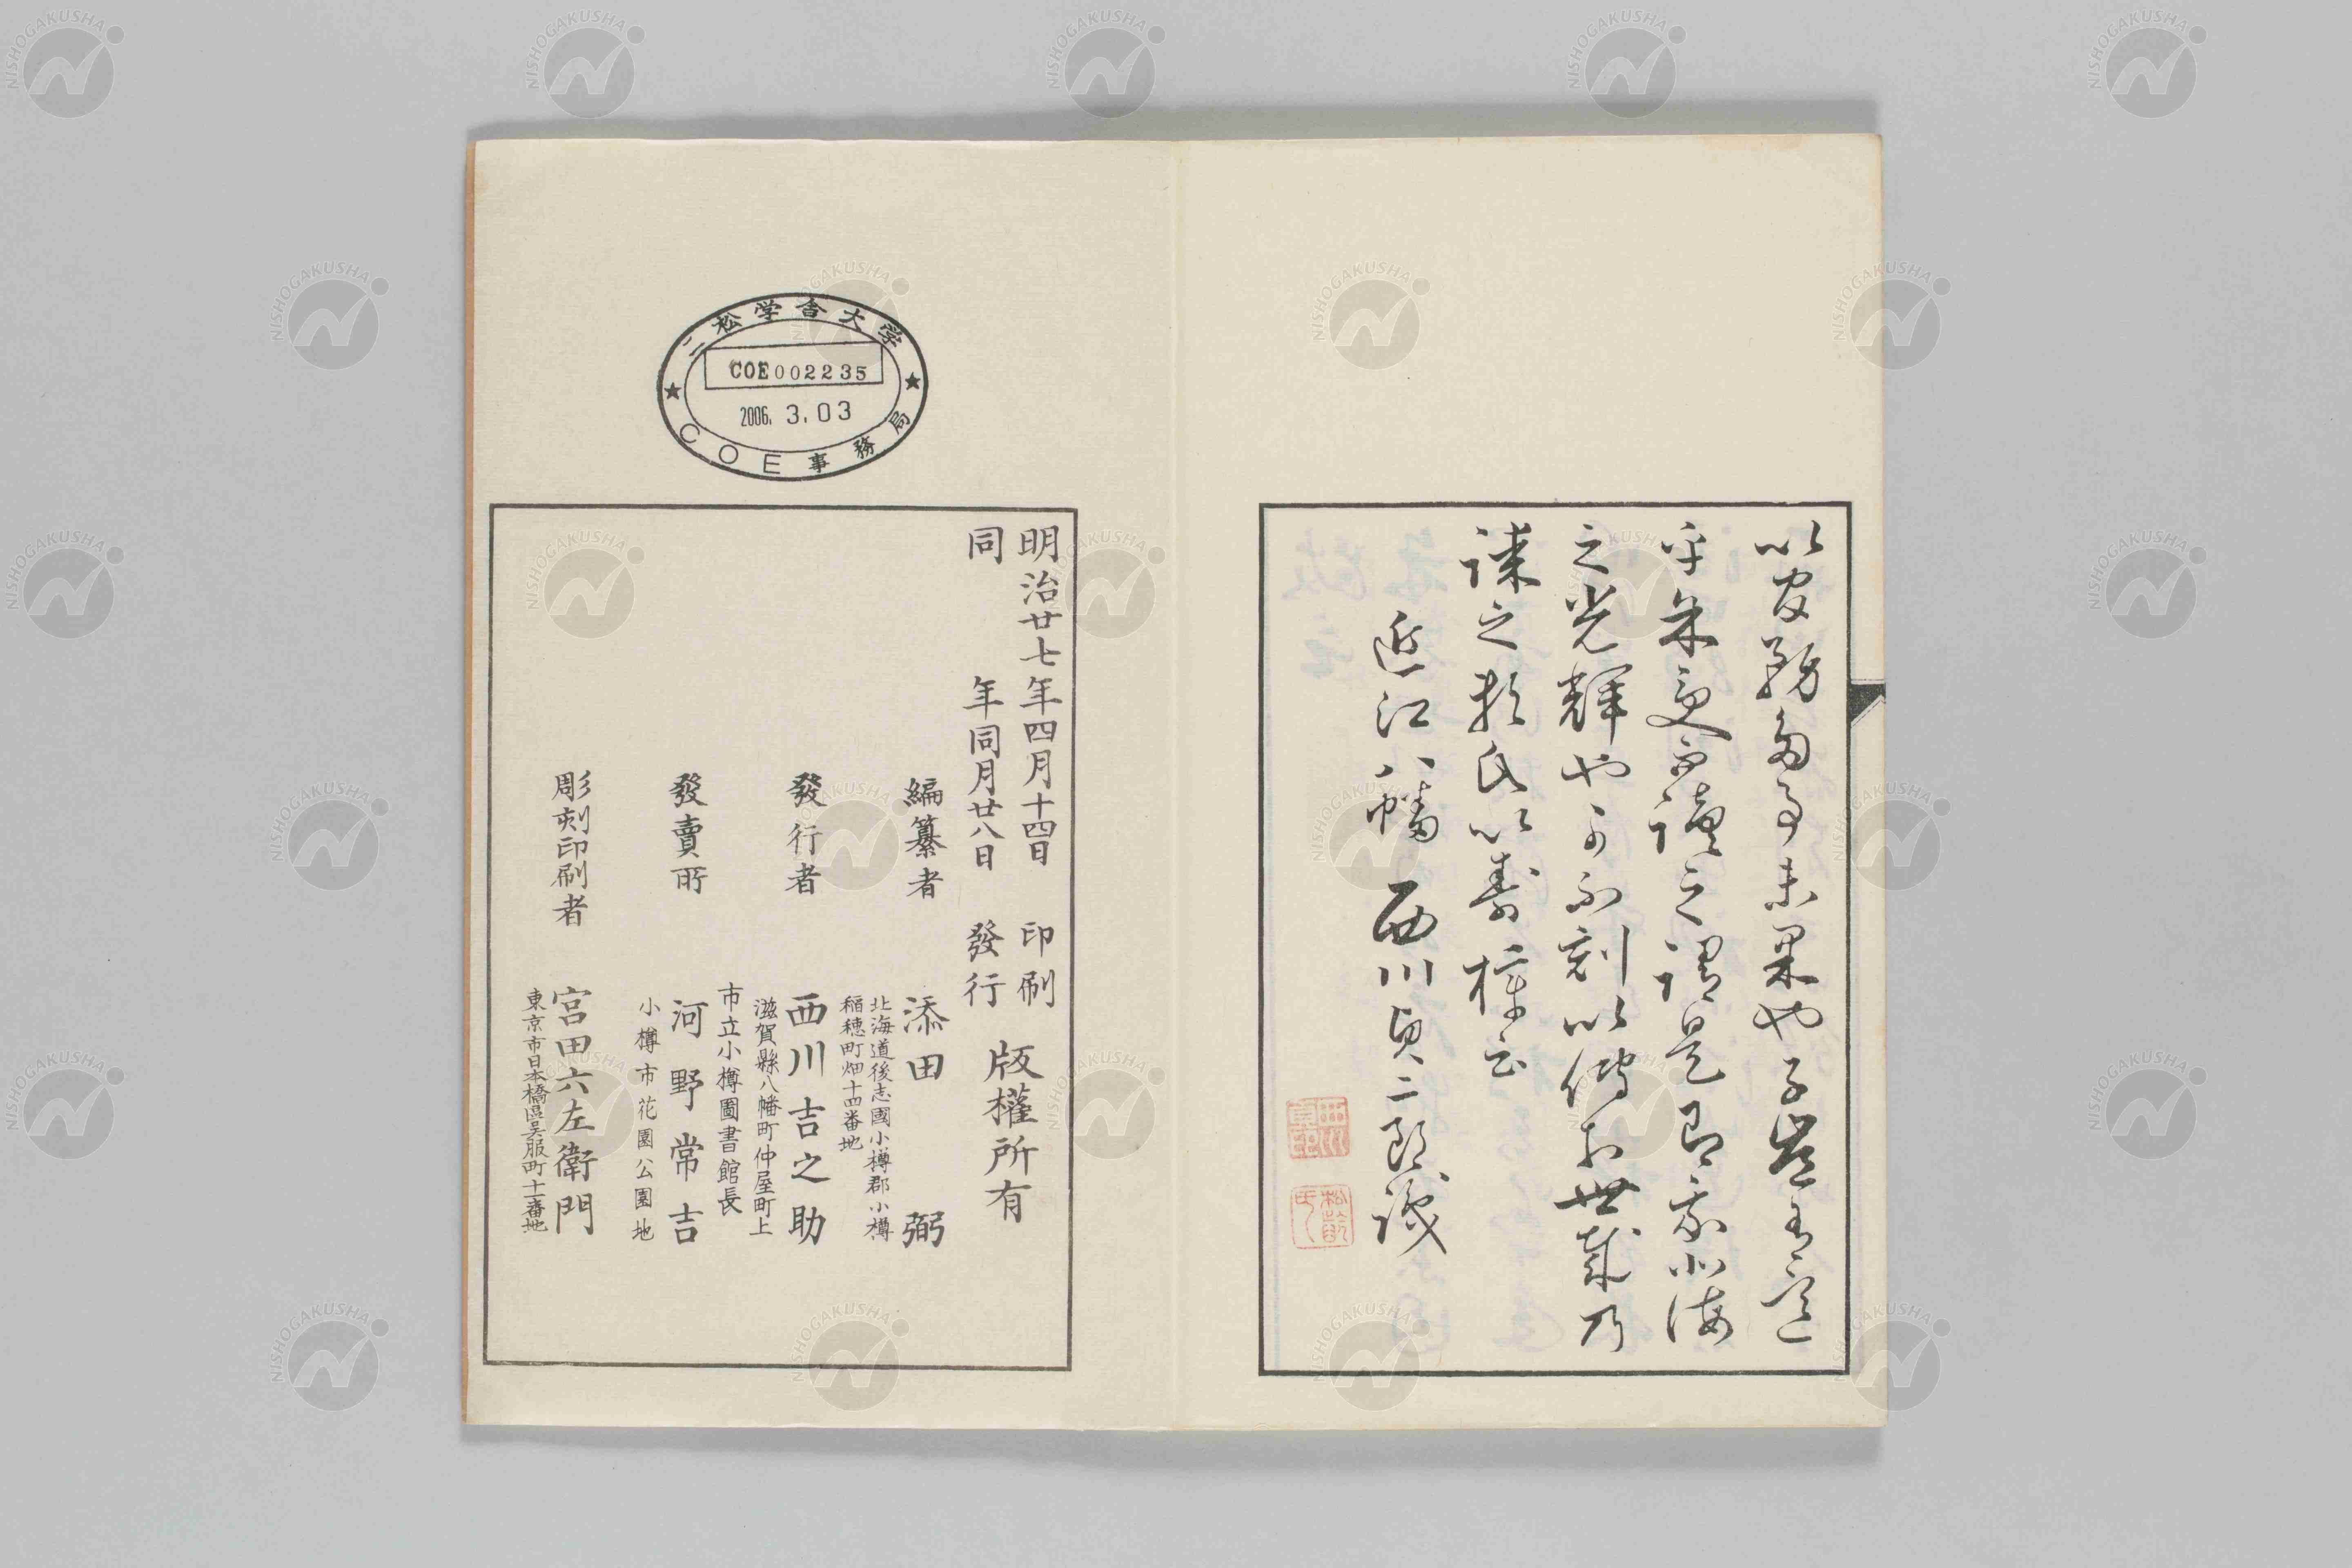 以家務多事未果也子豈有意
乎余受而讀之謂是即我北海
之光輝也可不刻以傳於世哉乃
謀之於氏以壽梓云
近江八幡 西川貞二郎識
明治廿七年四月十四日 印刷
同 年同月廿八日 發行
版權所有
編纂者 添田 弼
北海道後志國小樽郡小樽
稲穂町畑十四番地
發行者 西川吉之助
滋賀縣八幡町仲屋町上
市立小樽圖書館長
發賣所 河野常吉
小樽市花園公園地
彫刻印刷者 宮田六左衛門
東京市日本橋區呉服町十一番地
二松学舎大学
COE002235
2006. 3. 03
COE事務局
NISHOGAKUSHA